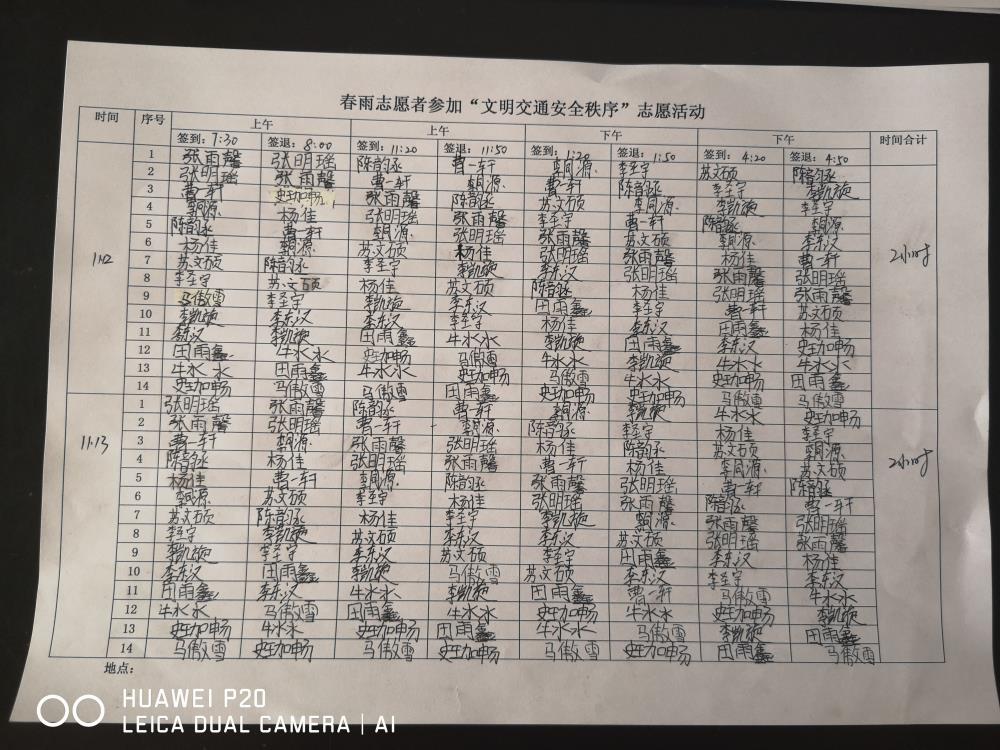 春雨志愿者参加“文明交通安全秩序”志愿活动
时间 序号 上午 上午 下午 下午 时间合计
签到：7:30 签退：8:00 签到：11:20 签退：11:50 签到：1:20 签退：1:50 签到：4:20 签退：4:50
11.12 2小时
1 张雨馨 张明瑶 陈韵丞 曹一轩 李同源 李至宇 苏文硕 陈韵丞
2 张明瑶 张雨馨 曹一轩 李同源 曹一轩 陈韵丞 李至宇 李凯硕
3 曹一轩 史珈畅 张雨馨 陈韵丞 苏文硕 李同源 李凯硕 李至宇
4 李同源 杨佳 张明瑶 张雨馨 李至宇 曹一轩 陈韵丞 李同源
5 陈韵丞 曹一轩 李同源 张明瑶 张雨馨 苏文硕 李同源 李东汉
6 杨佳 李同源 苏文硕 杨佳 张明瑶 张雨馨 杨佳 曹一轩
7 苏文硕 陈韵丞 李至宇 李凯硕 李东汉 张明瑶 张雨馨 张明瑶
8 李至宇 苏文硕 杨佳 苏文硕 陈韵丞 杨佳 张明瑶 张雨馨
9 马傲雪 李至宇 李凯硕 李东汉 田雨鑫 李至宇 曹一轩 苏文硕
10 李凯硕 李东汉 李东汉 李至宇 杨佳 李东汉 田雨鑫 杨佳
11 李东汉 李凯硕 田雨鑫 牛水水 李凯硕 田雨鑫 李东汉 史珈畅
12 田雨鑫 牛水水 史珈畅 马傲雪 牛水水 李凯硕 牛水水 牛水水
13 牛水水 田雨鑫 牛水水 史珈畅 马傲雪 牛水水 史珈畅 田雨鑫
14 史珈畅 马傲雪 马傲雪 田雨鑫 史珈畅 史珈畅 马傲雪 马傲雪
11.13 2小时
1 张明瑶 张雨馨 陈韵丞 曹一轩 李同源 李凯硕 牛水水 史珈畅
2 张雨馨 张明瑶 曹一轩 李同源 陈韵丞 李至宇 杨佳 李至宇
3 曹一轩 李同源 张雨馨 张明瑶 苏文硕 陈韵丞 苏文硕 李同源
4 陈韵丞 杨佳 张明瑶 张雨馨 曹一轩 杨佳 李同源 苏文硕
5 杨佳 曹一轩 李同源 陈韵丞 张雨馨 张明瑶 曹一轩 陈韵丞
6 李同源 苏文硕 李至宇 杨佳 张明瑶 张雨馨 陈韵丞 曹一轩
7 苏文硕 陈韵丞 杨佳 李至宇 李凯硕 李同源 张雨馨 张明瑶
8 李至宇 李凯硕 苏文硕 李东汉 李东汉 苏文硕 张明瑶 张雨馨
9 李凯硕 李至宇 李东汉 苏文硕 李至宇 田雨鑫 李东汉 杨佳
10 李东汉 田雨鑫 李凯硕 马傲雪 苏文硕 李东汉 李至宇 李东汉
11 田雨鑫 李东汉 牛水水 李凯硕 田雨鑫 曹一轩 马傲雪 牛水水
12 牛水水 马傲雪 田雨鑫 牛水水 史珈畅 牛水水 史珈畅 李凯硕
13 史珈畅 牛水水 史珈畅 田雨鑫 牛水水 马傲雪 李凯硕 田雨鑫
14 马傲雪 史珈畅 马傲雪 史珈畅 马傲雪 史珈畅 田雨鑫 马傲雪
地点：
HUAWEI P20
LEICA DUAL CAMERA | AI